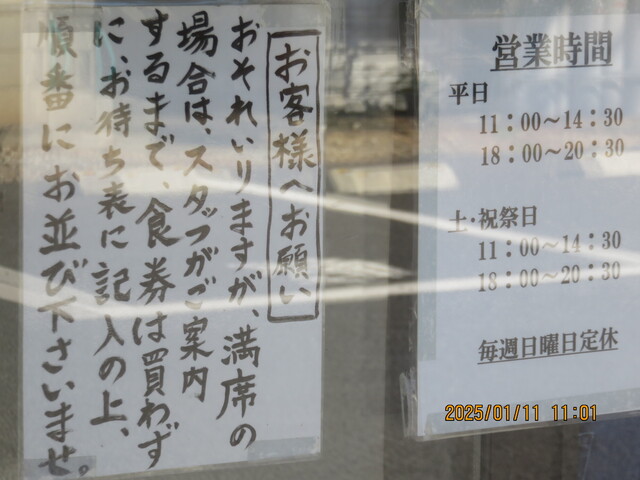 お客様へお願い
おそれいりますが、満席の
場合は、スタッフがご案内
するまで、食券は買わず
に、お待ち表に記入の上、
順番にお並び下さいませ。
営業時間
平日
11：00～14：30
18：00～20：30
土・祝祭日
11：00～14：30
18：00～20：30
毎週日曜日定休
2025/01/11 11:01